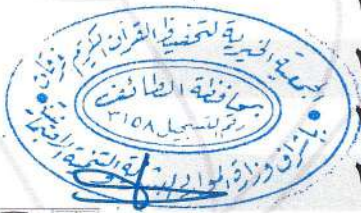 الجمعية الخيرية لتحفيظ القرآن الكريم فرقان
بمحافظة الطائف
رقم التسجيل ٣١٥٨
بإشراف وزارة الموارد البشرية والتنمية الاجتماعية